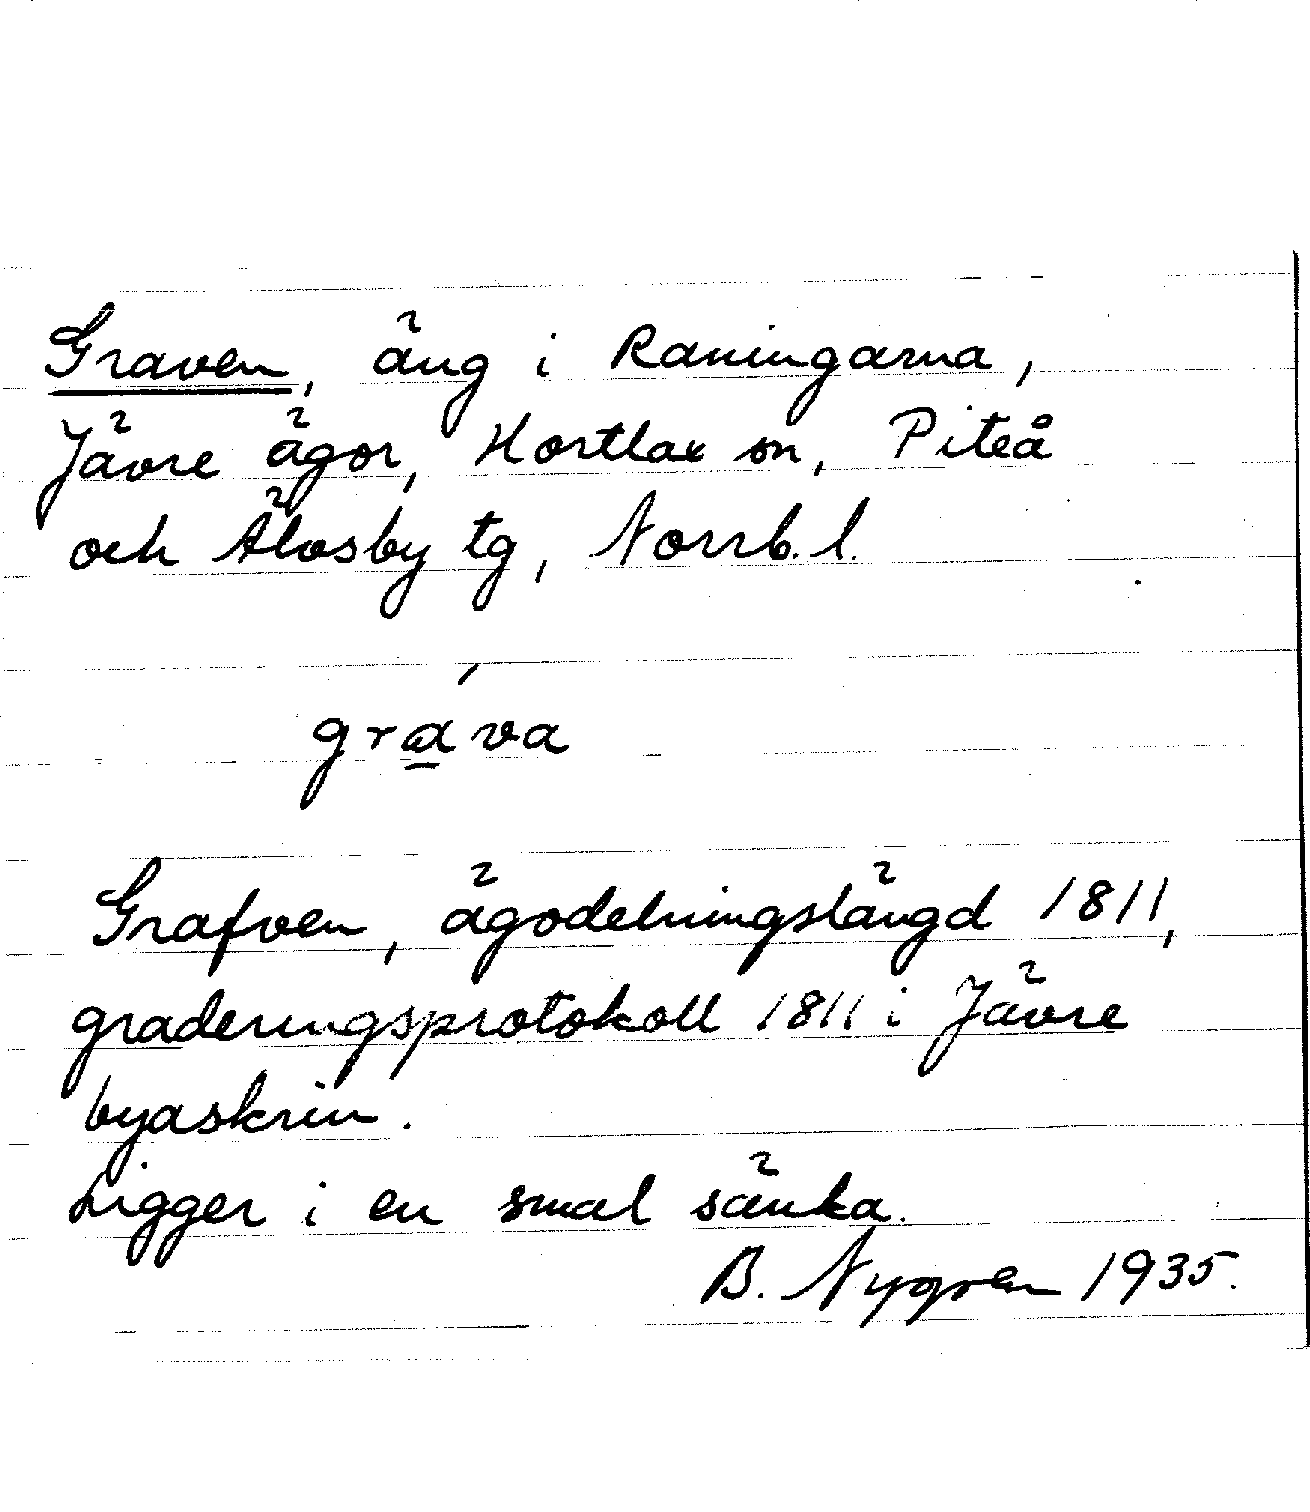 Graven, äng i Raningarna,
Jävre ägor, Hortlax sn, Piteå
och Älvsby tg, Norrb. l.
gráva
Grafven, ägodelningslängd 1811,
graderingsprotokoll 1811 i Jävre
byaskrin.
Ligger i en smal sänka.
B. Nygren 1935.